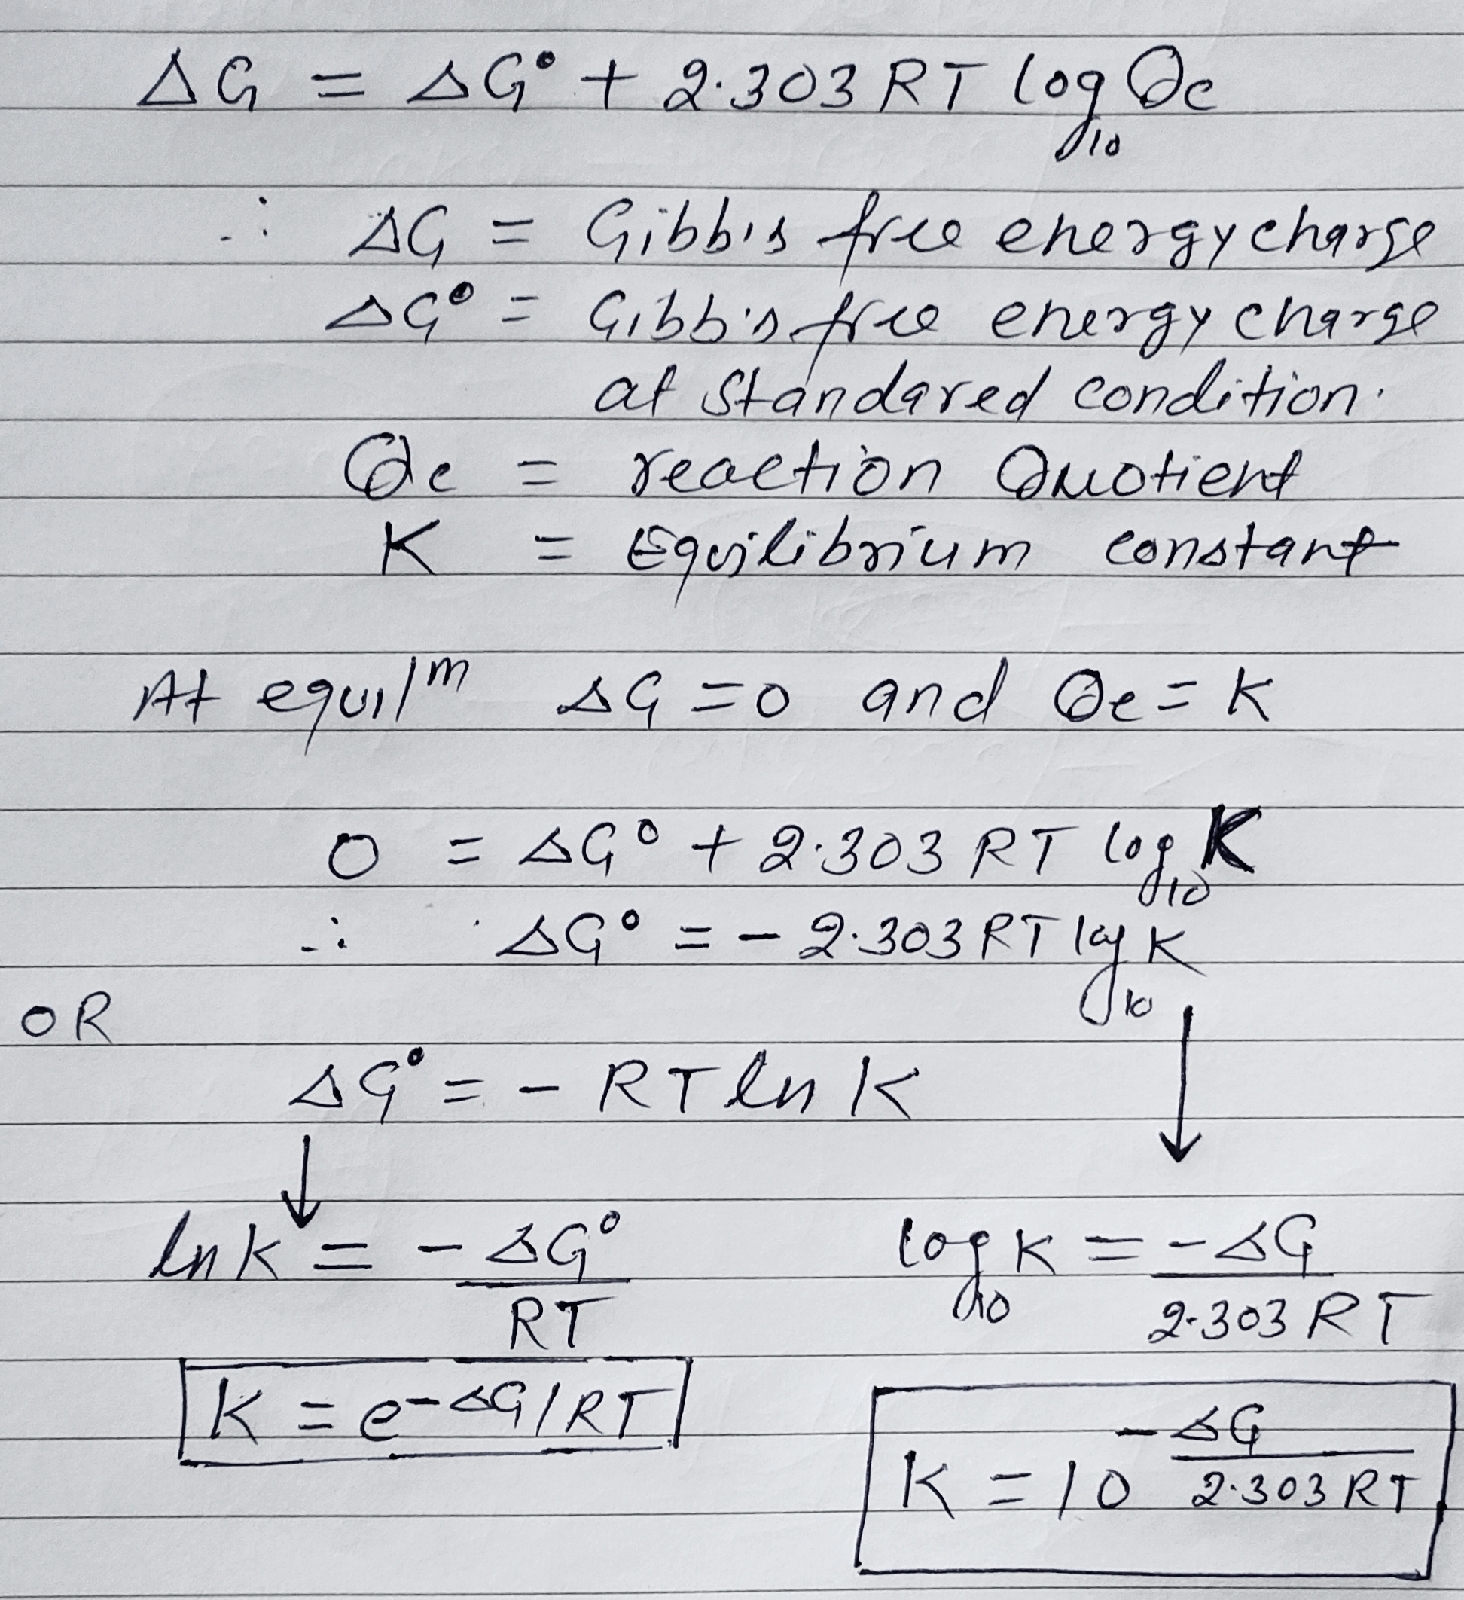 ΔG = ΔG° + 2.303 RT log₁₀ Qc
∴ ΔG = Gibb's free energy charge
ΔG° = Gibb's free energy charge
at Standared condition.
Qc = reaction Quotient
K = Equilibrium constant
At equilᵐ ΔG = 0 and Qc = K
0 = ΔG° + 2.303 RT log₁₀ K
∴ ΔG° = - 2.303 RT log₁₀ K
OR
ΔG° = - RT ln K
↓ ↓
ln K = -ΔG°/RT log₁₀ K = -ΔG/2.303 RT
K = e^-ΔG/RT K = 10^-ΔG/2.303 RT